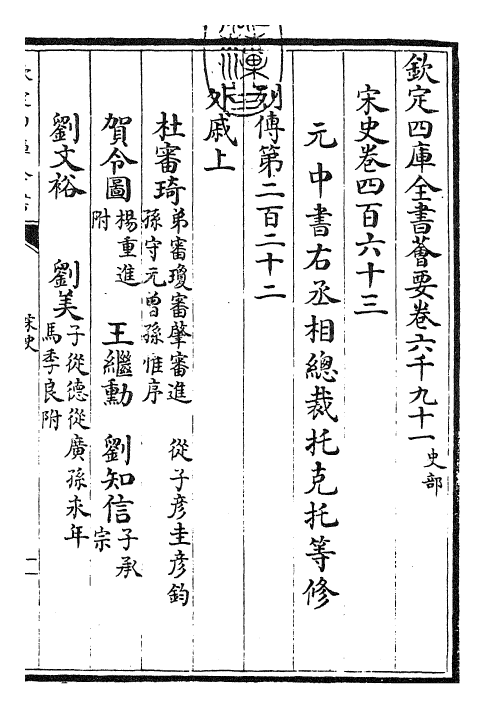 欽定四庫全書薈要卷六千九十一 史部
宋史卷四百六十三
元中書右丞相總裁托克托等修
列傳第二百二十二
外戚上
杜審琦 弟審瓊審肇審進 從子彥圭彥鈞
孫守元曾孫惟序
賀令圖 楊重進附 王繼勳 劉知信 子承宗
劉文裕 劉美 子從德從廣孫永年
馬季良附
宋史
一